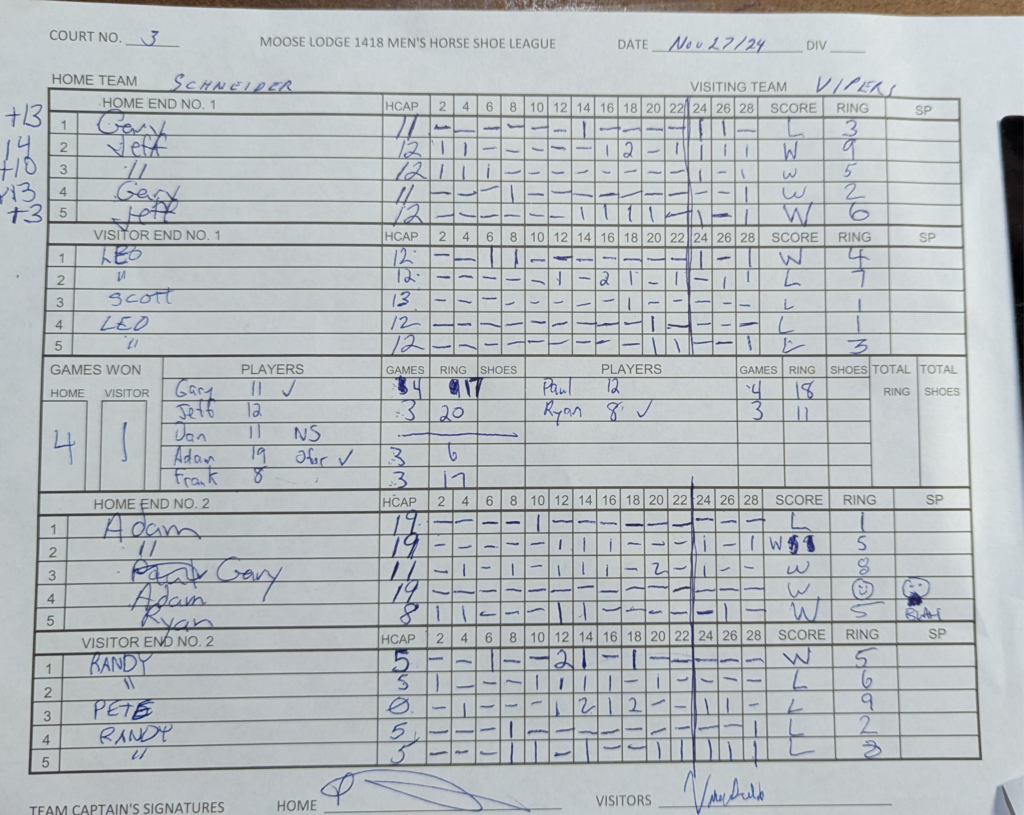 COURT NO. 3 MOOSE LODGE 1418 MEN'S HORSE SHOE LEAGUE DATE Nov 27/24 DIV
HOME TEAM SCHNEIDER VISITING TEAM VIPERS
HOME END NO. 1 HCAP 2 4 6 8 10 12 14 16 18 20 22 24 26 28 SCORE RING SP
+13 1 Gary 11 - - - - - - 1 - - - - 1 1 - L 3
14 2 Jeff 12 1 1 - - - - - 1 2 - 1 1 1 1 W 9
+10 3 " 12 1 1 1 - - - - - - - - 1 - 1 W 5
+13 4 Gary 11 - - - 1 - - - - - - - - - 1 W 2
+3 5 Jeff 12 - - - - - - 1 1 1 1 - 1 - 1 W 6
VISITOR END NO. 1 HCAP 2 4 6 8 10 12 14 16 18 20 22 24 26 28 SCORE RING SP
1 LEO 12 - - 1 1 - - - - - - - 1 - 1 W 4
2 " 12 - - - - - 1 - 2 1 - 1 - 1 1 L 7
3 Scott 13 - - - - - - - - 1 - - - - - L 1
4 LEO 12 - - - - - - - - - 1 - - - - L 1
5 " 12 - - - - - - - - - 1 1 - - 1 L 3
GAMES WON PLAYERS GAMES RING SHOES PLAYERS GAMES RING SHOES TOTAL TOTAL
HOME VISITOR RING SHOES
Gary 11 ✓ 4 17 Paul 12 4 18
Jeff 12 3 20 Ryan 8 ✓ 3 11
4 1 Dan 11 NS
Adam 19 ✓ 3 6
Frank 8 3 17
HOME END NO. 2 HCAP 2 4 6 8 10 12 14 16 18 20 22 24 26 28 SCORE RING SP
1 Adam 19 - - - - 1 - - - - - - - - - L 1
2 " 19 - - - - - 1 1 1 - - - 1 - 1 W 5
3 Gary 11 - 1 - 1 - 1 1 1 - 2 - 1 - - W 8
4 Adam 19 - - - - - - - - - - - - - - W
5 Ryan 8 1 1 - - - 1 1 - - - - - 1 - W 5 BLAH
VISITOR END NO. 2 HCAP 2 4 6 8 10 12 14 16 18 20 22 24 26 28 SCORE RING SP
1 RANDY 5 - - 1 - - 2 1 - 1 - - - - - W 5
2 " 5 1 - - - 1 1 1 1 - 1 - - - - L 6
3 PETE 0 - 1 - - - 1 2 1 2 - - 1 1 - L 9
4 RANDY 5 - - - 1 - - - - - - - - - 1 L 2
5 " 5 - - - 1 1 - 1 - - 1 1 1 1 1 L 8
TEAM CAPTAIN'S SIGNATURES HOME VISITORS